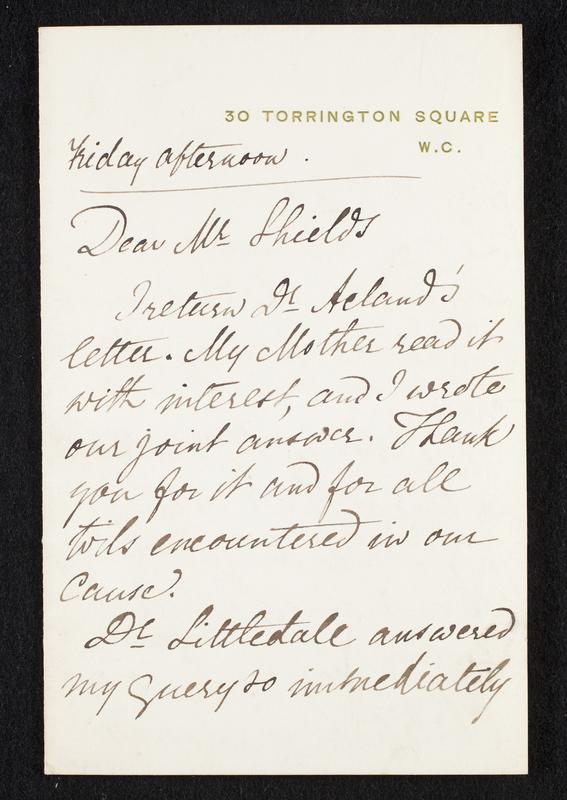 30 TORRINGTON SQUARE
W.C.
Friday afternoon.
Dear Mr. Shields
I return Dr. Acland's
letter. My Mother read it
with interest, and I wrote
our joint answer. Thank
you for it and for all
toils encountered in our
cause.
Dr. Littledale answered
my query so immediately